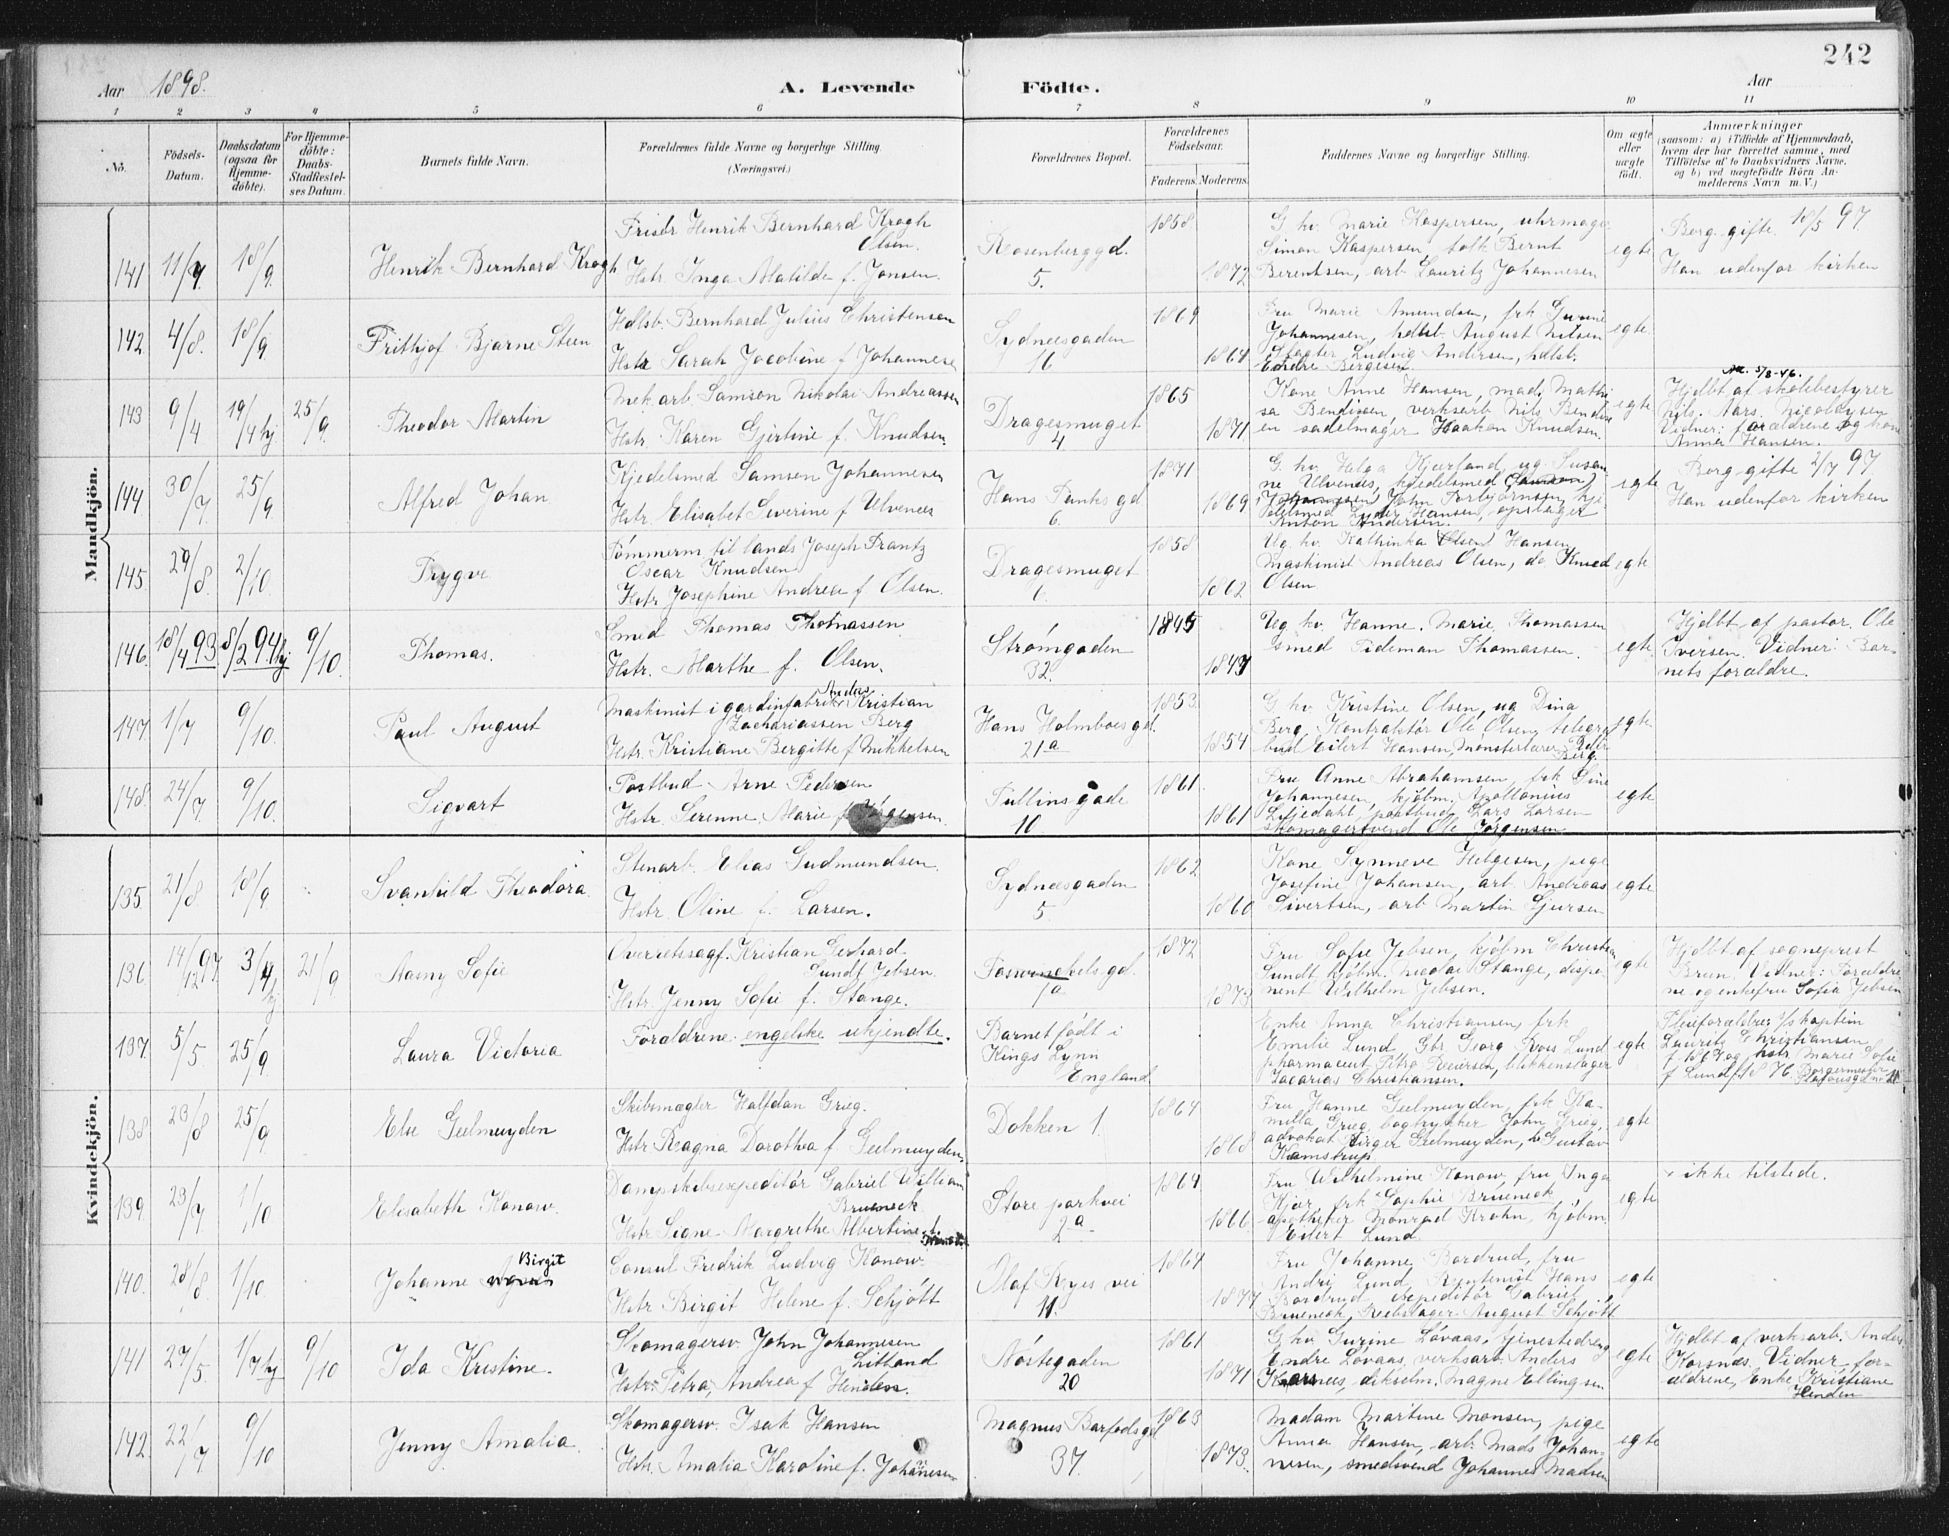 242
Aar 1898.
A. Levende Födte.
Aar
1 2 3 4 5 6 7 8 9 10 11
No.
Födsels-Datum.
Daabsdatum (ogsaa for Hjemme-döbte).
For Hjemme-döbte: Daabs-Stadfestel-ses Datum.
Barnets fulde Navn.
Forældrenes fulde Navne og borgerlige Stilling (Næringsvei.)
Forældrenes Bopæl.
Forældrenes Födselsaar.
Faderens. Moderens.
Faddernes Navne og borgerlige Stilling.
Om ægte eller uægte födt.
Anmærkninger
(saasom: a) i Tilfælde af Hjemmedaab,
hvem der har forrettet samme, med
Tilföielse af to Daabsvidners Navne.
og b) ved uægtefödte Börn An-
melderens Navn m. V.)
Mandkjön.
141 11/7. 18/9. Henrik Bernhard Krogh
Frisör Henrik Bernhard Krogh
Olsen.
Hstr. Inga Matilde f. Jansen.
Rosenberggd.
5.
1858. 1872
G. kv. Marie Kaspersen, uhrmager
Simon Kaspersen, tolk Bernt
Berentsen, arb. Lauritz Johannesen
egte
Borg. gifte 18/5 97
Han udenfor kirken
142 4/8. 18/9 Frithjof Bjarne Steen
Hdlsb. Bernhard Julius Christensen
Hstr Sarah Jacobine f. Johannesen
Sydnesgaden
16
1869 1864
Fru Marie Amundsen, frk
Johannesen, hdlsb. August Nilsen
Slagter Ludvig Andersen, hdlsb.
Endre Bergesen
egte
143 9/4 19/4 hj 25/9. Theodor Martin
Mek arb Samson Nikolai Andreassen
Hstr. Karen Gjertine f. Knudsen.
Dragesmuget
4
1865 1871
Kone Anne Hansen, mad. Mathi
sa Bendixen, verksarb. Nils Bendix
en sadelmager Haakon Knudsen.
egte
Hjdbt af skolebestyrer
Nils Aars. Nicolaysen
Vidner: forældrene og kone
Anna Hansen.
144 30/7. 25/9 Alfred Johan
Kjedelsmed Samson Johannesen
Hstr. Elisabet Severine f Ulvenes
Hans Tanks gd
6.
1871 1869
G. kv. Helga Kjærland, ug. Susan
ne Ulvenes, kjedelsmed
John Torbjörnsen, kje
delsmed Hansen, opsl
Anton Andersen.
egte
Borg. gifte 2/7 97
Han udenfor kirken
145. 29/8. 2/10. Trygve
Tömmerm til lands Joseph Frantz
Oscar Knudsen
Hstr Josephine Andrea f. Olsen.
Dragesmuget
6.
1858 1862
Ug. kv. Kathinka Hansen
Maskinist Andreas Olsen, do Knud
Olsen
egte
146. 18/4 93 8/2 94 hj 9/10. Thomas.
Smed Thomas Thomassen
Hstr. Marthe f. Olsen.
Strömgaden
32.
1845 1847
Ug. kv. Hanne. Marie Thomassen
smed Tideman Thomassen.
egte
Hjdbt. af pastor. Ole
Iversen. Vidner: Bar-
nets forældre.
147. 1/7 9/10. Paul August
Maskinist i gardinfabrik Kristian
Zachariassen Berg
Hstr. Kristiane Bergitte f Mikkelsen
Hans Holmboes gd.
21a
1853. 1854
G. kv. Kristine Olsen, ug Dina
Berg, Kontraktör Ole Olsen, telegraf
bud Eilert Hansen,
Berg.
egte
148. 24/7. 9/10. Sigvart
Postbud Arne Pedersen
Hstr. Serenne, Marie f. Jörgensen.
Tullins gade
10
1861. 1861
Fru Anne Abrahamsen, frk Sine
Johannesen, kjöbm. Apollonius
Liljedahl, postbud Lars Larsen
skomagersvend Ole Jörgensen
egte
Kvindekjön.
135 21/8. 18/9 Svanhild Theodora.
Stenarb. Elias Gudmundsen
Hstr. Oline f. Larsen.
Sydnesgaden
5.
1862 1860
Kone Synneve Helgesen, pige
Josefine Johansen, arb. Andreas
Sivertsen, arb Martin Sjursen
egte
136 14/12 97 3/4 hj 21/9 Aasny Sofie
Overretssagf. Kristian Gerhard
Sundt Jebsen.
Hstr. Jenny Sofie f. Stange.
Fosswinckels gd.
1a
1872 1873
Fru Sofie Jebsen, kjöbm Christian
Sundt kjöbm. Nicolai Stange, dispo-
nent Wilhelm Jebsen.
egte
Hjdbt af sogneprest
Brun. Vidner: Forældre
ne og enkefru Sofia Jebsen
137. 5/5 25/9 Laura Victoria
Forældrene engelske ukjendte.
Barnet födt i
Kings Lynn
England
Enke Anna Christiansen, frk
Emilie Lund Gbr Georg Lund
pharmaceut Petra Iversen, blikkenslager
Zacarias Christiansen.
egte
Pleiforældre: s/s kaptein
Lauritz Christiansen
f. 1867 og hstr. Marie Sofie
f Lund f. 1876 Borgermester
138 23/8 25/9 Else Geelmuyden
Skibsmægler Halfdan Grieg.
Hstr Ragna Dorothea f Geelmuyden.
Dokken 1.
1864 1868
Fru Hanne Geelmuyden, frk Ka-
milla Grieg, bogtrykker John Grieg,
advokat Birger Geelmuyden, Gustav
Kamstrup
egte
139 23/7 1/10 Elisabeth Konow.
Dampskibsexpeditör Gabriel William
Bruenech
Hstr Signe Margrethe Albertine f.
Store parkvei
2a
1864 1866.
Fru Wilhelmine Konow, fru Inga
Kjær, frk Sophie Bruenech
apotheker Monrad Krohn, kjöbm.
Eilert Lund
egte
ikke tilstede.
140. 28/8. 1/10. Johanne Birgit
Consul Fredrik Ludvig Konow.
Hstr. Birgit Helene f. Schjött
Olaf Ryes vei
11.
1864 1877
Fru Johanne Bordrud, fru
Andri Lund, Hans
Bordrud expeditör Gabriel
Bruenech, Rebslager August Schjött
egte
141 27/5. 1/7 hj 9/10 Ida Kristine.
Skomagersv. John Johannesen
Litland
Hstr. Petra, Andrea f Henden.
Nöstegaden
20
1861 1871
G. kv. Gurine Lövaas, tjenestedreng
Endre Lövaas, verksarb. Anders
Korsnes, Magne Ellingsen
egte
Hjdbt af verksarb. Anders
Korsnæs. Vidner for-
ældrene, enke Kristiane
Henden
142. 22/7 9/10 Jenny Amalia.
Skomagersv. Isak Hansen
Hstr. Amalia Karoline f. Johannesen
Magnus Barfods gd
37.
1863 1873.
Madam Martine Monsen, pige
Anna Hansen, arb. Mads Johan-
nesen, smedsvend Johannes Madsen
egte